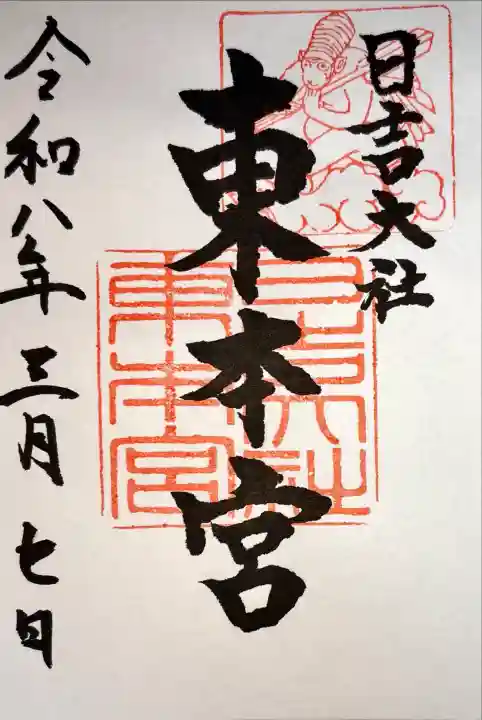 日吉大社
東本宮
令和八年三月七日
日吉大社
東本宮